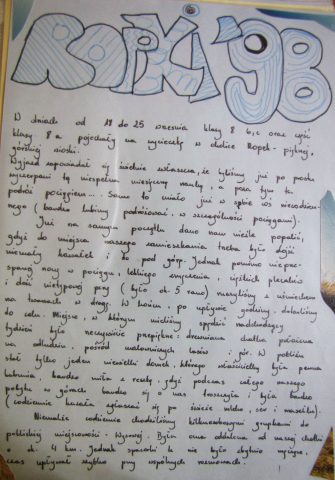 ROPKI '98
W dniach od 18 do 25 września klasy 8 b, c oraz część
klasy 8 a pojechały na wycieczkę w okolice Ropek - pięknej,
górskiej wioski.
Wyjazd zapowiadał się świetnie zwłaszcza, że byliśmy już po prostu
wyczerpani tą niespełna miesięczną nauką, a poza tym ta
podróż pociągiem... Samo to miało już w sobie coś niecodzien-
nego (bardzo lubimy podróżować, w szczególności pociągami).
Już na samym początku dano nam nieźle popalić,
gdyż do miejsca naszego zamieszkania trzeba było dojść
niemały kawałek i to pod górę. Jednak pomimo nieprze-
spanej nocy w pociągu, lekkiego zmęczenia, ciężkich plecaków
i dość nietypowej pory (było ok. 5 rano) ruszyliśmy z uśmiechem
na twarzach w drogę. W końcu, po upływie godziny, dotarliśmy
do celu. Miejsce, w którym mieliśmy spędzić nadchodzący
tydzień było rzeczywiście przepiękne: drewniana chatka położona
na odludziu, pośród malowniczych lasów i gór. W pobliżu
stał tylko jeden niewielki domek, którego właścicielką była pewna
kobieta, bardzo miła z resztą, gdyż podczas całego naszego
pobytu w górach bardzo się o nas troszczyła i była bardzo
(codziennie kazała zgłaszać się po świeże mleko, ser i masełko).
Niemalże codziennie chodziliśmy kilkuosobowymi grupkami do
pobliskiej miejscowości - Wysowej. Była ona oddalona od naszej chatki
o ok. 4 km. Jednak spacerki te nie były zbytnio męczące,
czas upływał szybko przy wspólnych rozmowach.